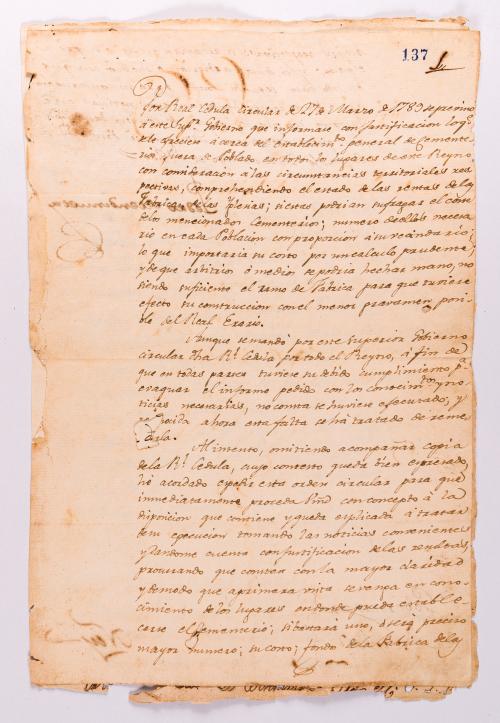 137
Por Real Cedula Circular de 27 de Marzo de 1789 se previno
à este Supr. Gobierno que informase con justificacion lo q.e
se le ofreciese à cerca del establecim.to general de Cemente
rios fuera de Poblado, en todos los lugares de este Reyno,
con consideracion à las circunstancias territoriales res
pectivas, comprehendiendo el estado de las rentas de las
Fabricas de las Yglesias; si estas podrian sufragar el costo
de los mencionados Cementerios; numero de ellos necesa
rio en cada Poblacion con proporcion à su vecindario;
lo que importaria su costo por un calculo prudente;
y de que arbitrio ò medio se podria hechar mano, no
siendo suficiente el ramo de Fabrica para que tuviese
efecto su construccion con el menor gravamen posi
ble del Real Erario.
Aunque se mandò por este Superior Gobierno
circular dha R.l Cedula por todo el Reyno, à fin de
que en todas partes tuviese su debido cumplimiento, p.a
evaquar el informe pedido con los conocim.tos y no
ticias necesarias, no consta se huviese efectuado, y
ahora esta falta se hà tratado de reme
diarla.
Al intento, omitiendo acompañar copia
de la R.l Cedula, cuyo contesto queda bien expresado,
hè acordado expedir esta orden circular para que
inmediatamente proceda Vmd con concepto à la
disposicion que contiene y queda explicada à tratar
de su egecucion tomando las noticias convenientes
y dandome cuenta con justificacion de las resultas,
procurando que conste con la mayor claridad
y de modo que à primera vista se venga en cono
cimiento de los lugares en donde pueda estable
cerse el Cementerio; si bastarà uno, ò serà preciso
mayor numero; su costo; fondo de la Fabrica de las